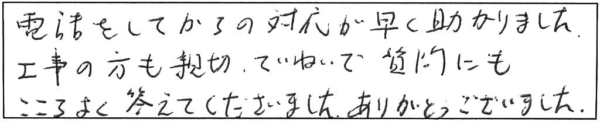 電話をしてからの対応が早く助かりました.
工事の方も親切、ていねいで質問にも
こころよく答えてくださいました。ありがとうございました.